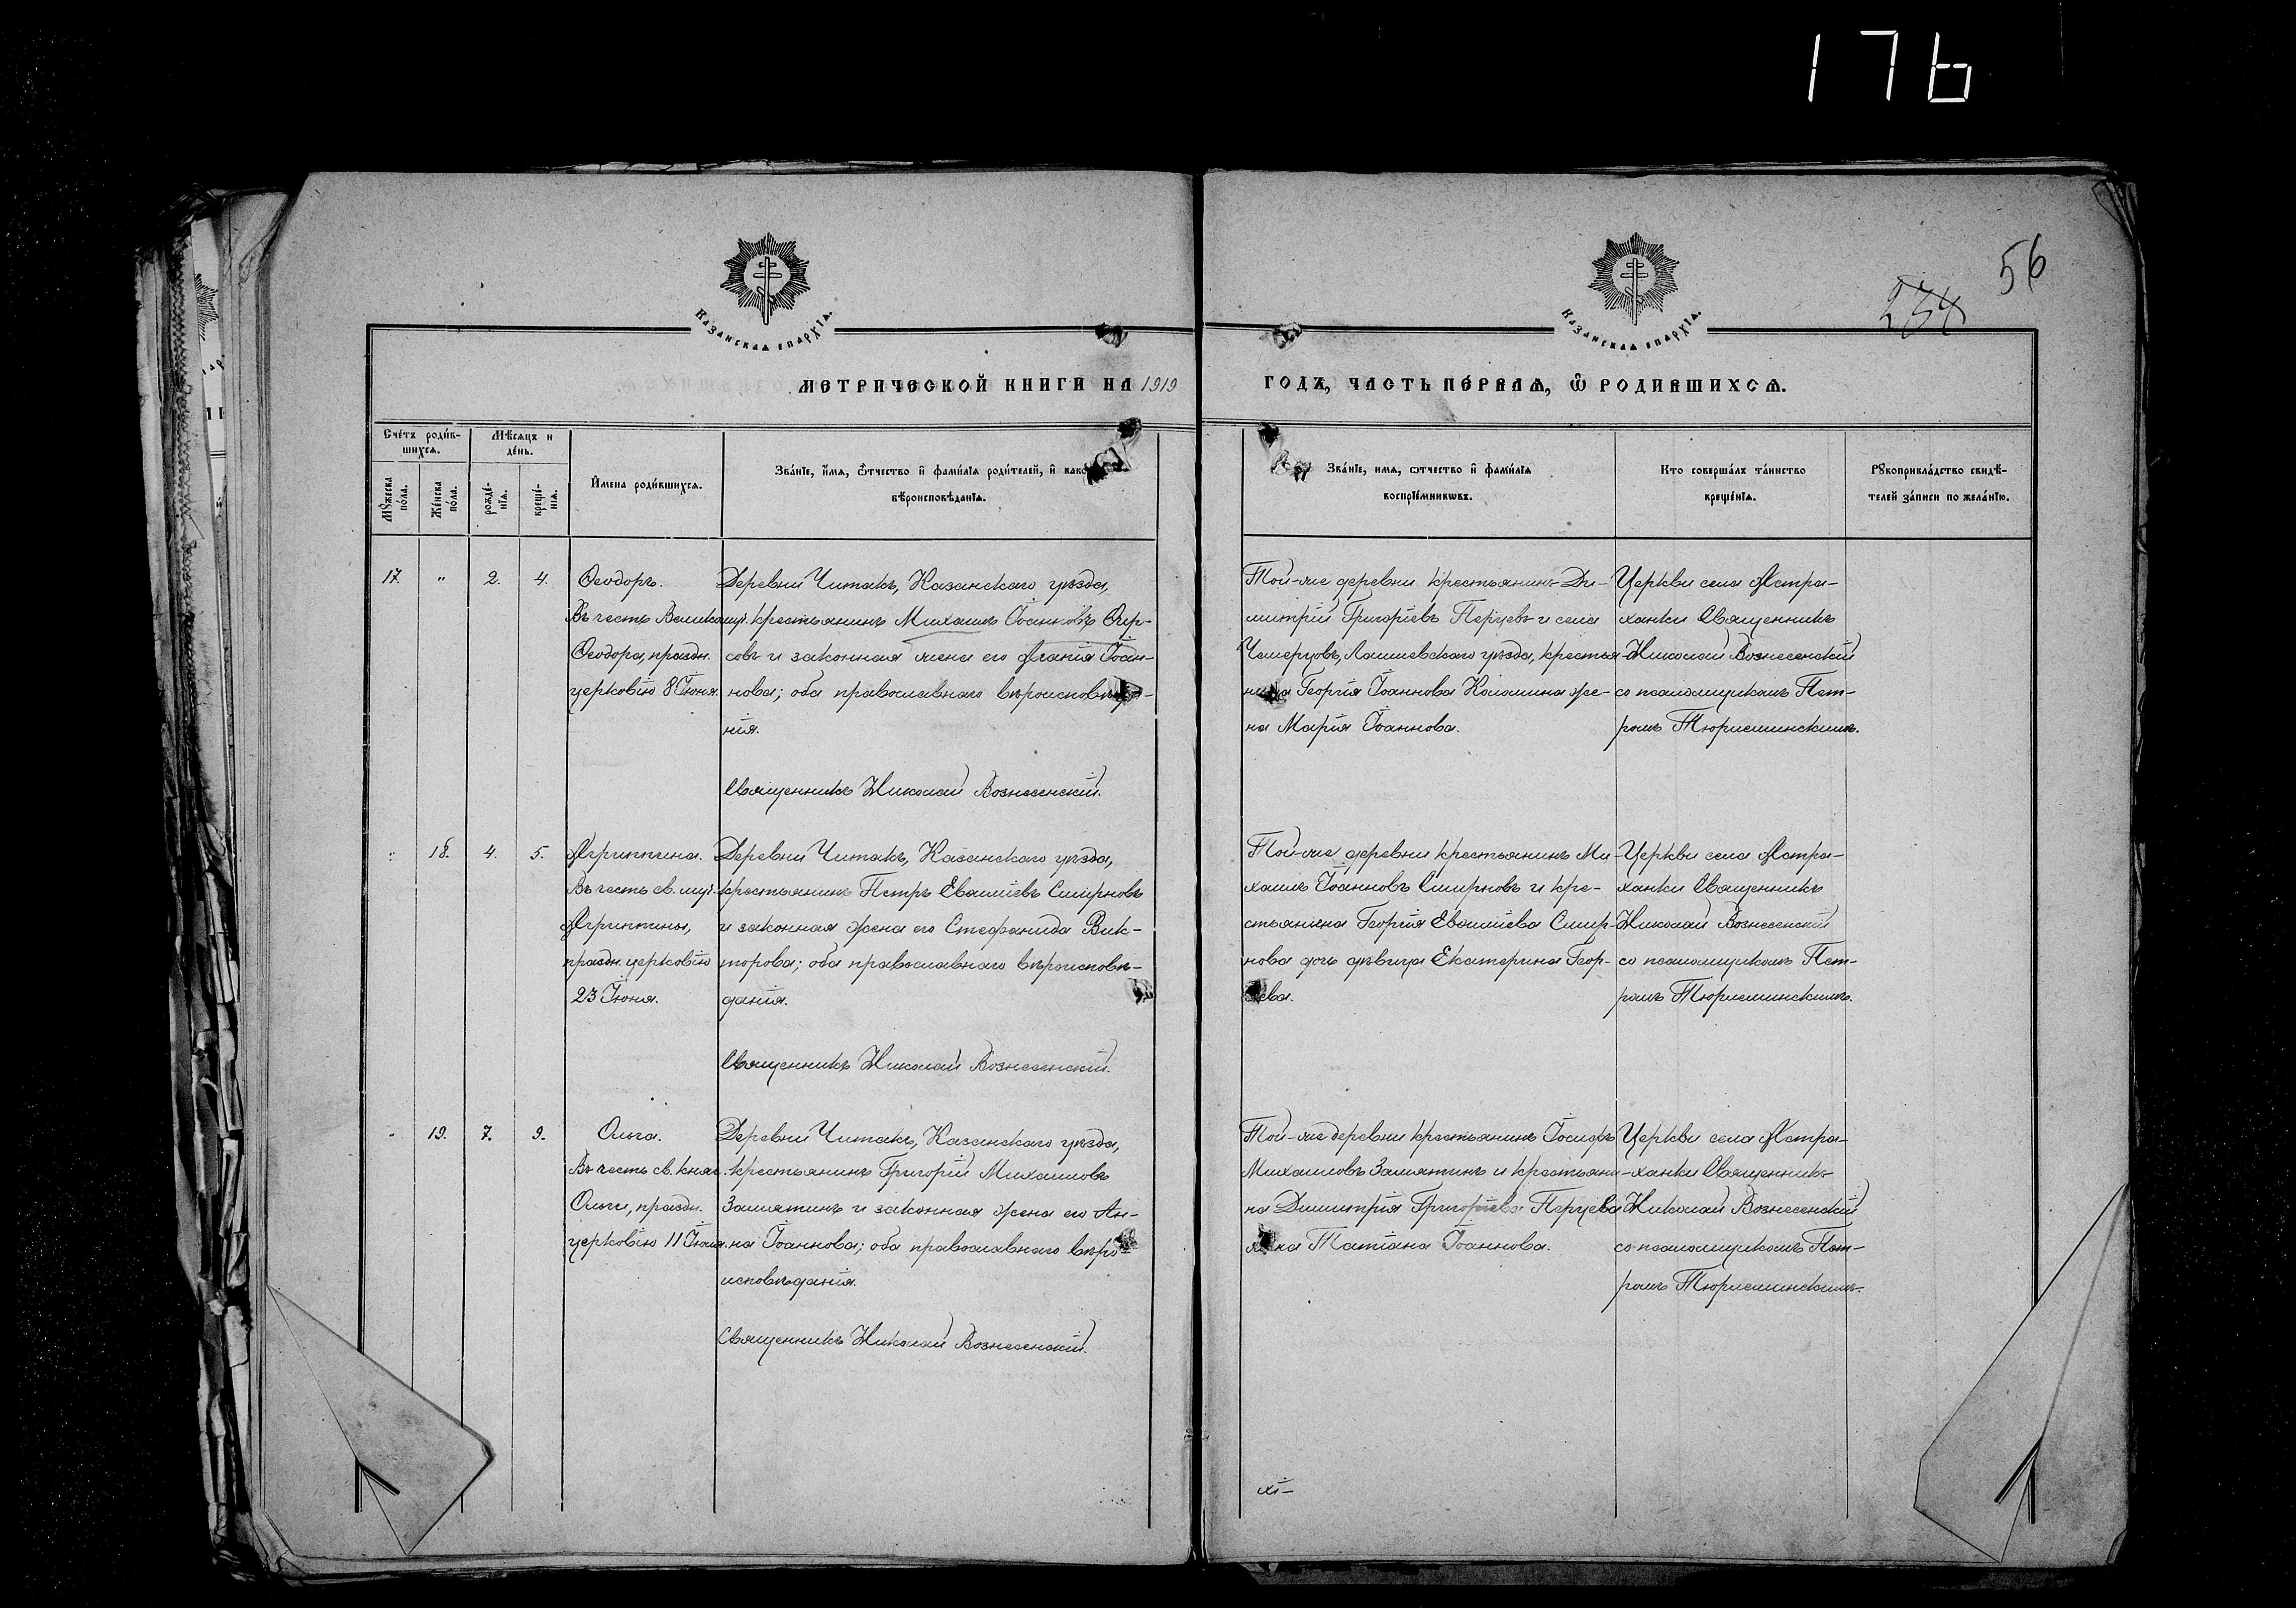 176
56
234
Казанская епархїѧ.
Казанская епархїѧ.
МЕТРИЧЕСКОЙ КНИГИ НА 1919
ГОДЪ, ЧАСТЬ ПЕ́РВАѦ, Ѽ РОДИВШИХСѦ.
Сче́тъ роди́в-
шихсѧ.
Мѣ́сѧцъ и
де́нь.
Мꙋ́жеска
по́ла.
Же́нска
по́ла.
рожде́-
нїѧ.
креще́-
нїѧ.
И҆мена роди́вшихсѧ.
Зва́нїе, и҆́мѧ, ѻ҆́тчество и҆ фами́лїѧ роди́телей, и҆ како
вѣроисповѣ́данїѧ.
Зва́нїе, имѧ, ѻтчество и҆ фами́лїѧ
воспрїе́мникѡвъ.
Кто соверша́лъ та́инство
креще́нїѧ.
Рꙋкоприкла́дство свидѣ́-
телей за́писи по жела́нїю.
17. " 2. 4. Ѳеодоръ.
Въ честь Великомуч.
Ѳеодора, праздн.
церковію 8 Іюня.
Деревни Читакъ, Казанскаго уѣзда,
крестьянинъ Михаилъ Іоанновъ Фир-
совъ и законная жена его Агапія Іоан-
нова; оба православнаго вѣроисповѣда-
нія.
Священникъ Николай Вознесенскій.
Той-же деревни крестьянинъ Ди-
митрій Григоріевъ Перцевъ и села
Чемерцовъ, Лаишевскаго уѣзда, крестья-
нина Георгія Іоаннова Коломина же-
на Марія Іоаннова.
Церкви села Астра-
ханки Священникъ
Николай Вознесенскій
со псаломщикомъ Пет-
ромъ Тюрлеминскимъ.
" 18. 4. 5. Агриппина.
Въ честь св. муч.
Агриппины,
праздн. церковію
23 Іюня.
Деревни Читакъ, Казанскаго уѣзда,
крестьянинъ Петръ Евѳиміевъ Смирновъ
и законная жена его Стефанида Вик-
торова; оба православнаго вѣроисповѣ-
данія.
Священникъ Николай Вознесенскій.
Той-же деревни крестьянинъ Ми-
хаилъ Іоанновъ Смирновъ и кре-
стьянина Георгія Евѳиміева Смир-
нова дочь дѣвица Екатерина Геор-
гіева.
Церкви села Астра-
ханки Священникъ
Николай Вознесенскій
со псаломщикомъ Пет-
ромъ Тюрлеминскимъ.
" 19. 7. 9. Ольга.
Въ честь св. княг.
Ольги, праздн.
церковію 11 Іюля.
Деревни Читакъ, Казанскаго уѣзда,
крестьянинъ Григорій Михаиловъ
Замятинъ и законная жена его Ан-
на Іоаннова; оба православнаго вѣро-
исповѣданія.
Священникъ Николай Вознесенскій.
Той-же деревни крестьянинъ Іосифъ
Михаиловъ Замятинъ и крестьяни-
на Димитрія Григоріева Перцева
жена Татіана Іоаннова.
Церкви села Астра-
ханки Священникъ
Николай Вознесенскій
со псаломщикомъ Пет-
ромъ Тюрлеминскимъ.